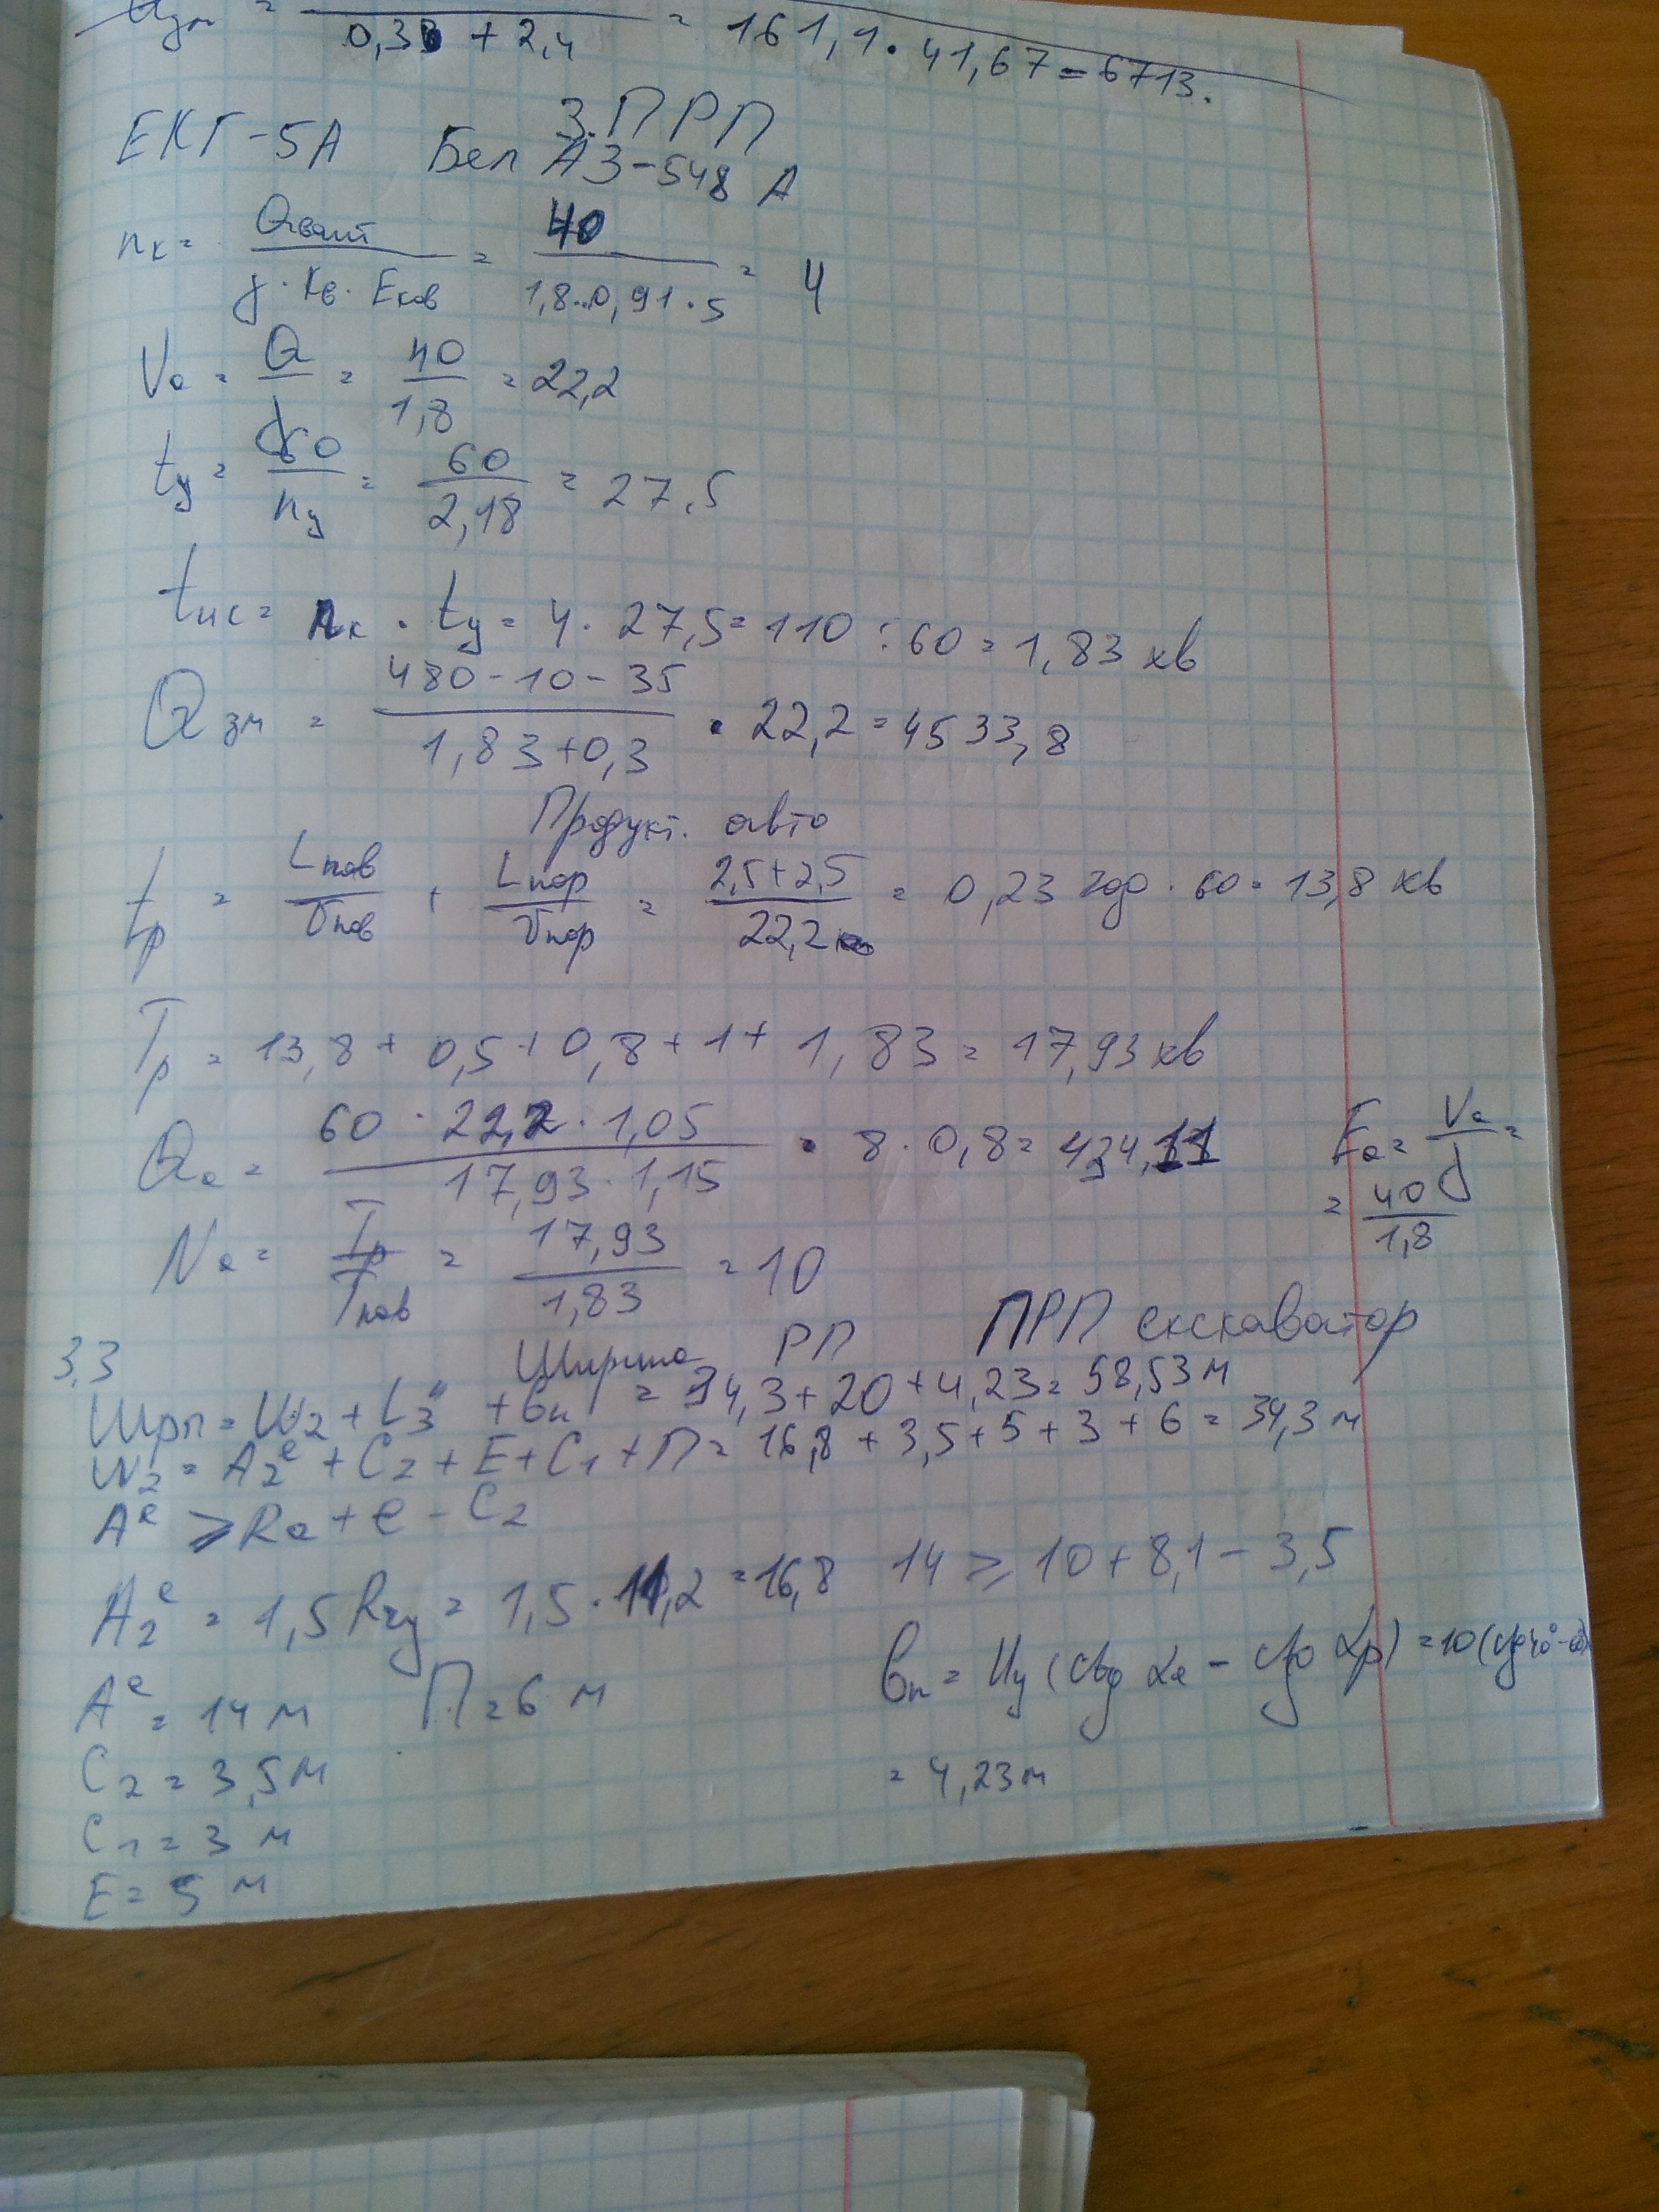 = 0,3 + 2,4 = 161,1 · 41,67 = 6713.
3. ПРП
ЕКГ-5А БелАЗ-548 А
nк = Qвант / γ · Кв · Eков = 40 / 1,8 · 0,91 · 5 = 4
Va = Q / γ = 40 / 1,8 = 22,2
tц = 60 / nц = 60 / 2,18 = 27,5
tнс = nк · tц = 4 · 27,5 = 110 : 60 = 1,83 хв
Qзм = 480 - 10 - 35 / 1,83 + 0,3 · 22,2 = 4533,8
Продукт. авто
tр = Lпов / υпов + Lпор / υпор = 2,5 + 2,5 / 22,2 = 0,23 год · 60 = 13,8 хв
Tр = 13,8 + 0,5 + 0,8 + 1 + 1,83 = 17,93 хв
Qa = 60 · 22,2 · 1,05 / 17,93 · 1,15 · 8 · 0,8 = 434,11
Ea = Va / γ = 
= 40 / 1,8
Na = Tр / Tпов = 17,93 / 1,83 = 10
3,3 Ширина РП ПРП екскаватор
Шрп = Ш2 + L3" + вп = 34,3 + 20 + 4,23 = 58,53 м
Ш2 = А2e + С2 + Е + С1 + П = 16,8 + 3,5 + 5 + 3 + 6 = 34,3 м
Аe ⩾ Ra + e - С2
14 ⩾ 10 + 8,1 - 3,5
А2e = 1,5 Rчу = 1,5 · 11,2 = 16,8
Аe = 14 м П = 6 м
вп = Ну (ctg αe - ctg αр) = 10 (ctg 40° -
= 4,23 м
С2 = 3,5 м
С1 = 3 м
Е = 5 м